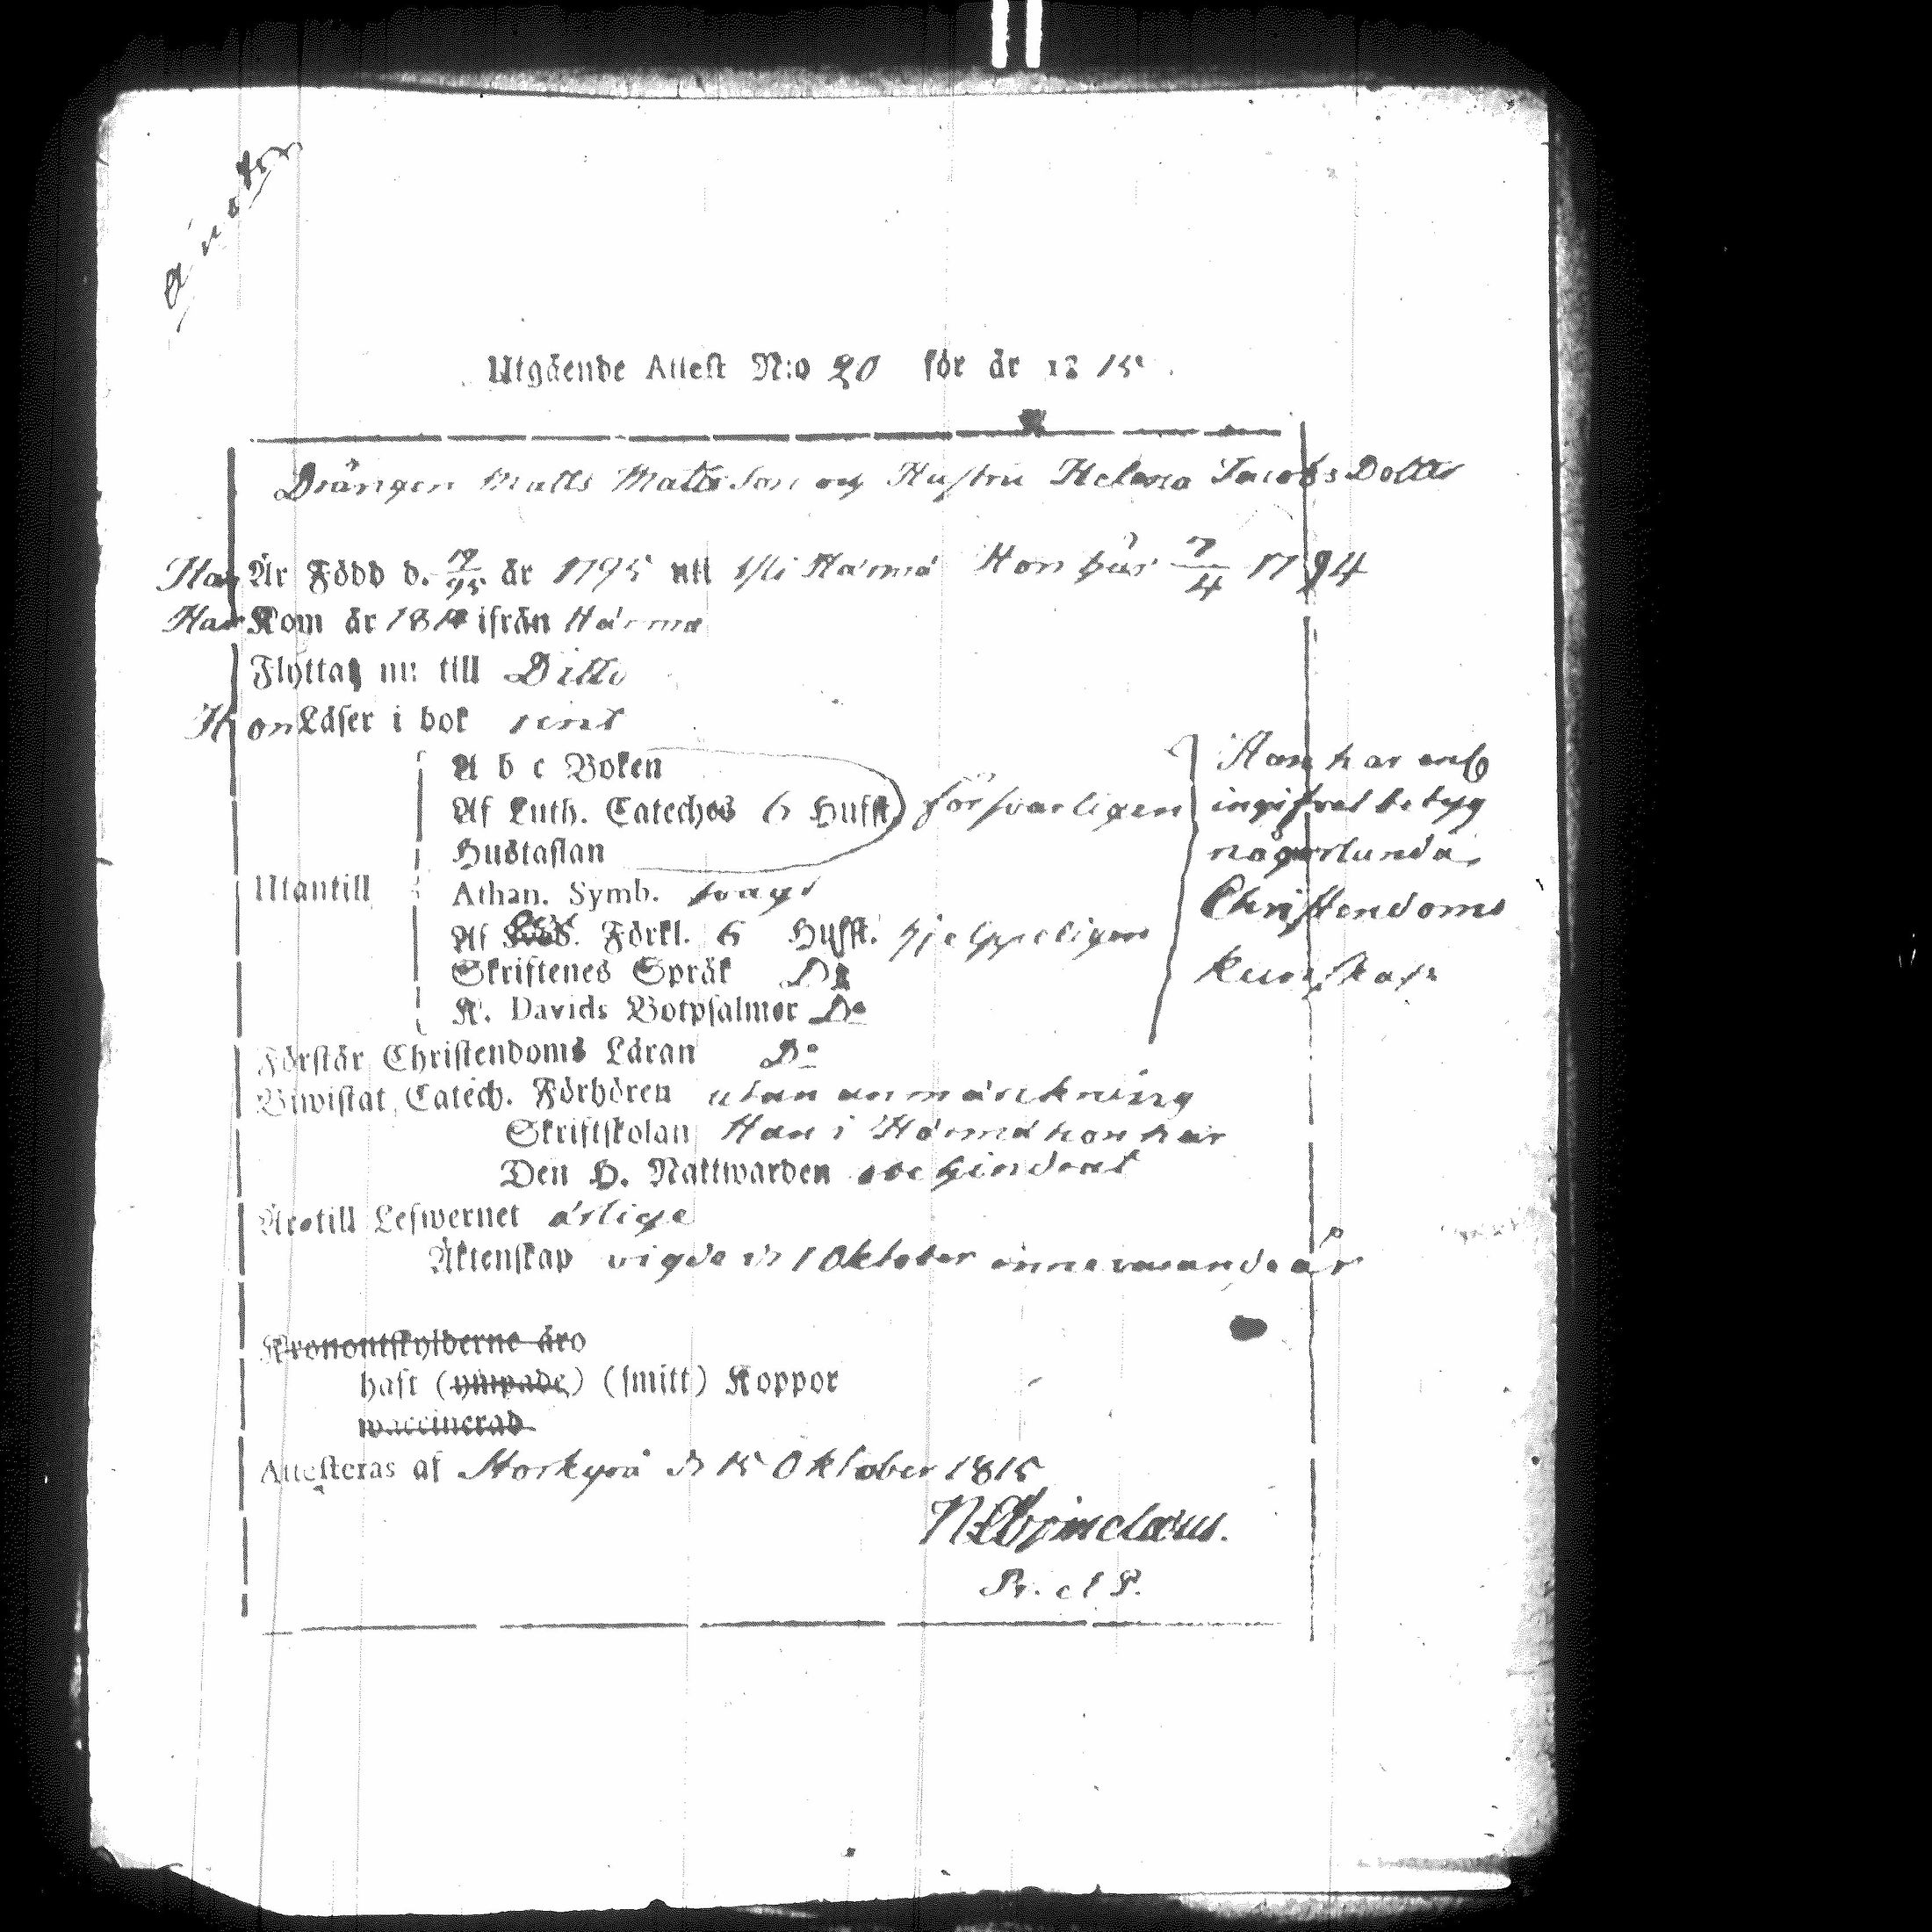 Utgående Attest N:o 20 för år 1815.
Drängen Matts Mattsson och Hustru Helena Jacobs Dotter
Han Är Född d. år 1795 uti Härmä Hon här 7/4 1794
Han Kom år 181 ifrån Härmä
Flytta nu till Ditto
Hon Läser i bok rent
A b c Boken
Af Luth. Cateches 6 Hufst. försvarligen
Hustaflan
Utantill
Athan. Symb. svagt
Af Förkl. 6 Hufst. hjelppeligen
Skriftenes Språk Do
K. Davids Botpsalmer Do
Han har enl.
ingifvet betyg
någorlunda
Christendoms
kunskap
Förstår Christendoms Läran Do
Biwistat Catech. Förhören utan anmärckning
Skriftskolan Han i Härmä hon här
Den H. Nattwarden obehindrat
Äro till Lefwernet ärlige
Äktenskap vigde d. 1 Oktober innevarande år
Kronoutskylderne äro
haft (ympade) (smitt) Koppor
waccinerad
Attesteras af Storkyrå d. 15 Oktober 1815
Pr. et P.